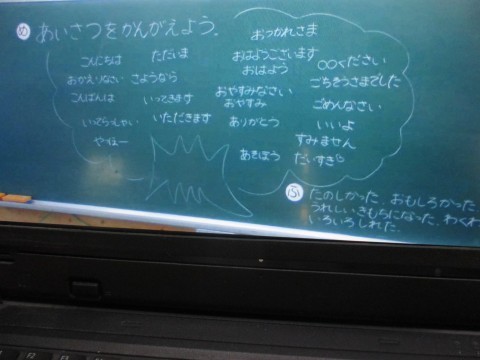 め あいさつをかんがえよう。
おつかれさま
こんにちは ただいま おはようございます ○○ください
おはよう
おかえりなさい さようなら ごちそうさまでした
こんばんは いってきます おやすみなさい ごめんなさい
おやすみ
いってらっしゃい いただきます ありがとう いいよ
やっほー すみません
あそぼう だいすき♡
ふ たのしかった、おもしろかった
うれしいきもちになった、わくわ
いろいろしれた。